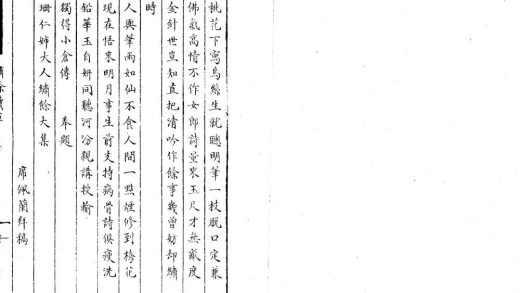 桃花下寫烏絲生就聰明筆一枝脫口定兼
佛氣高情不作女郎詩量來玉尺才無敵度
金針世豈知直把清吟作餘事幾曾妨却繡
時
人與筆兩如仙不食人間一點煙修到梅花
現在悟來明月事生前支持病骨詩俱瘦洗
鉛華玉自妍同聽河汾親講授輸
獨得小倉傳　奉題
珊仁姊大人繡餘大集
席佩蘭拜稿